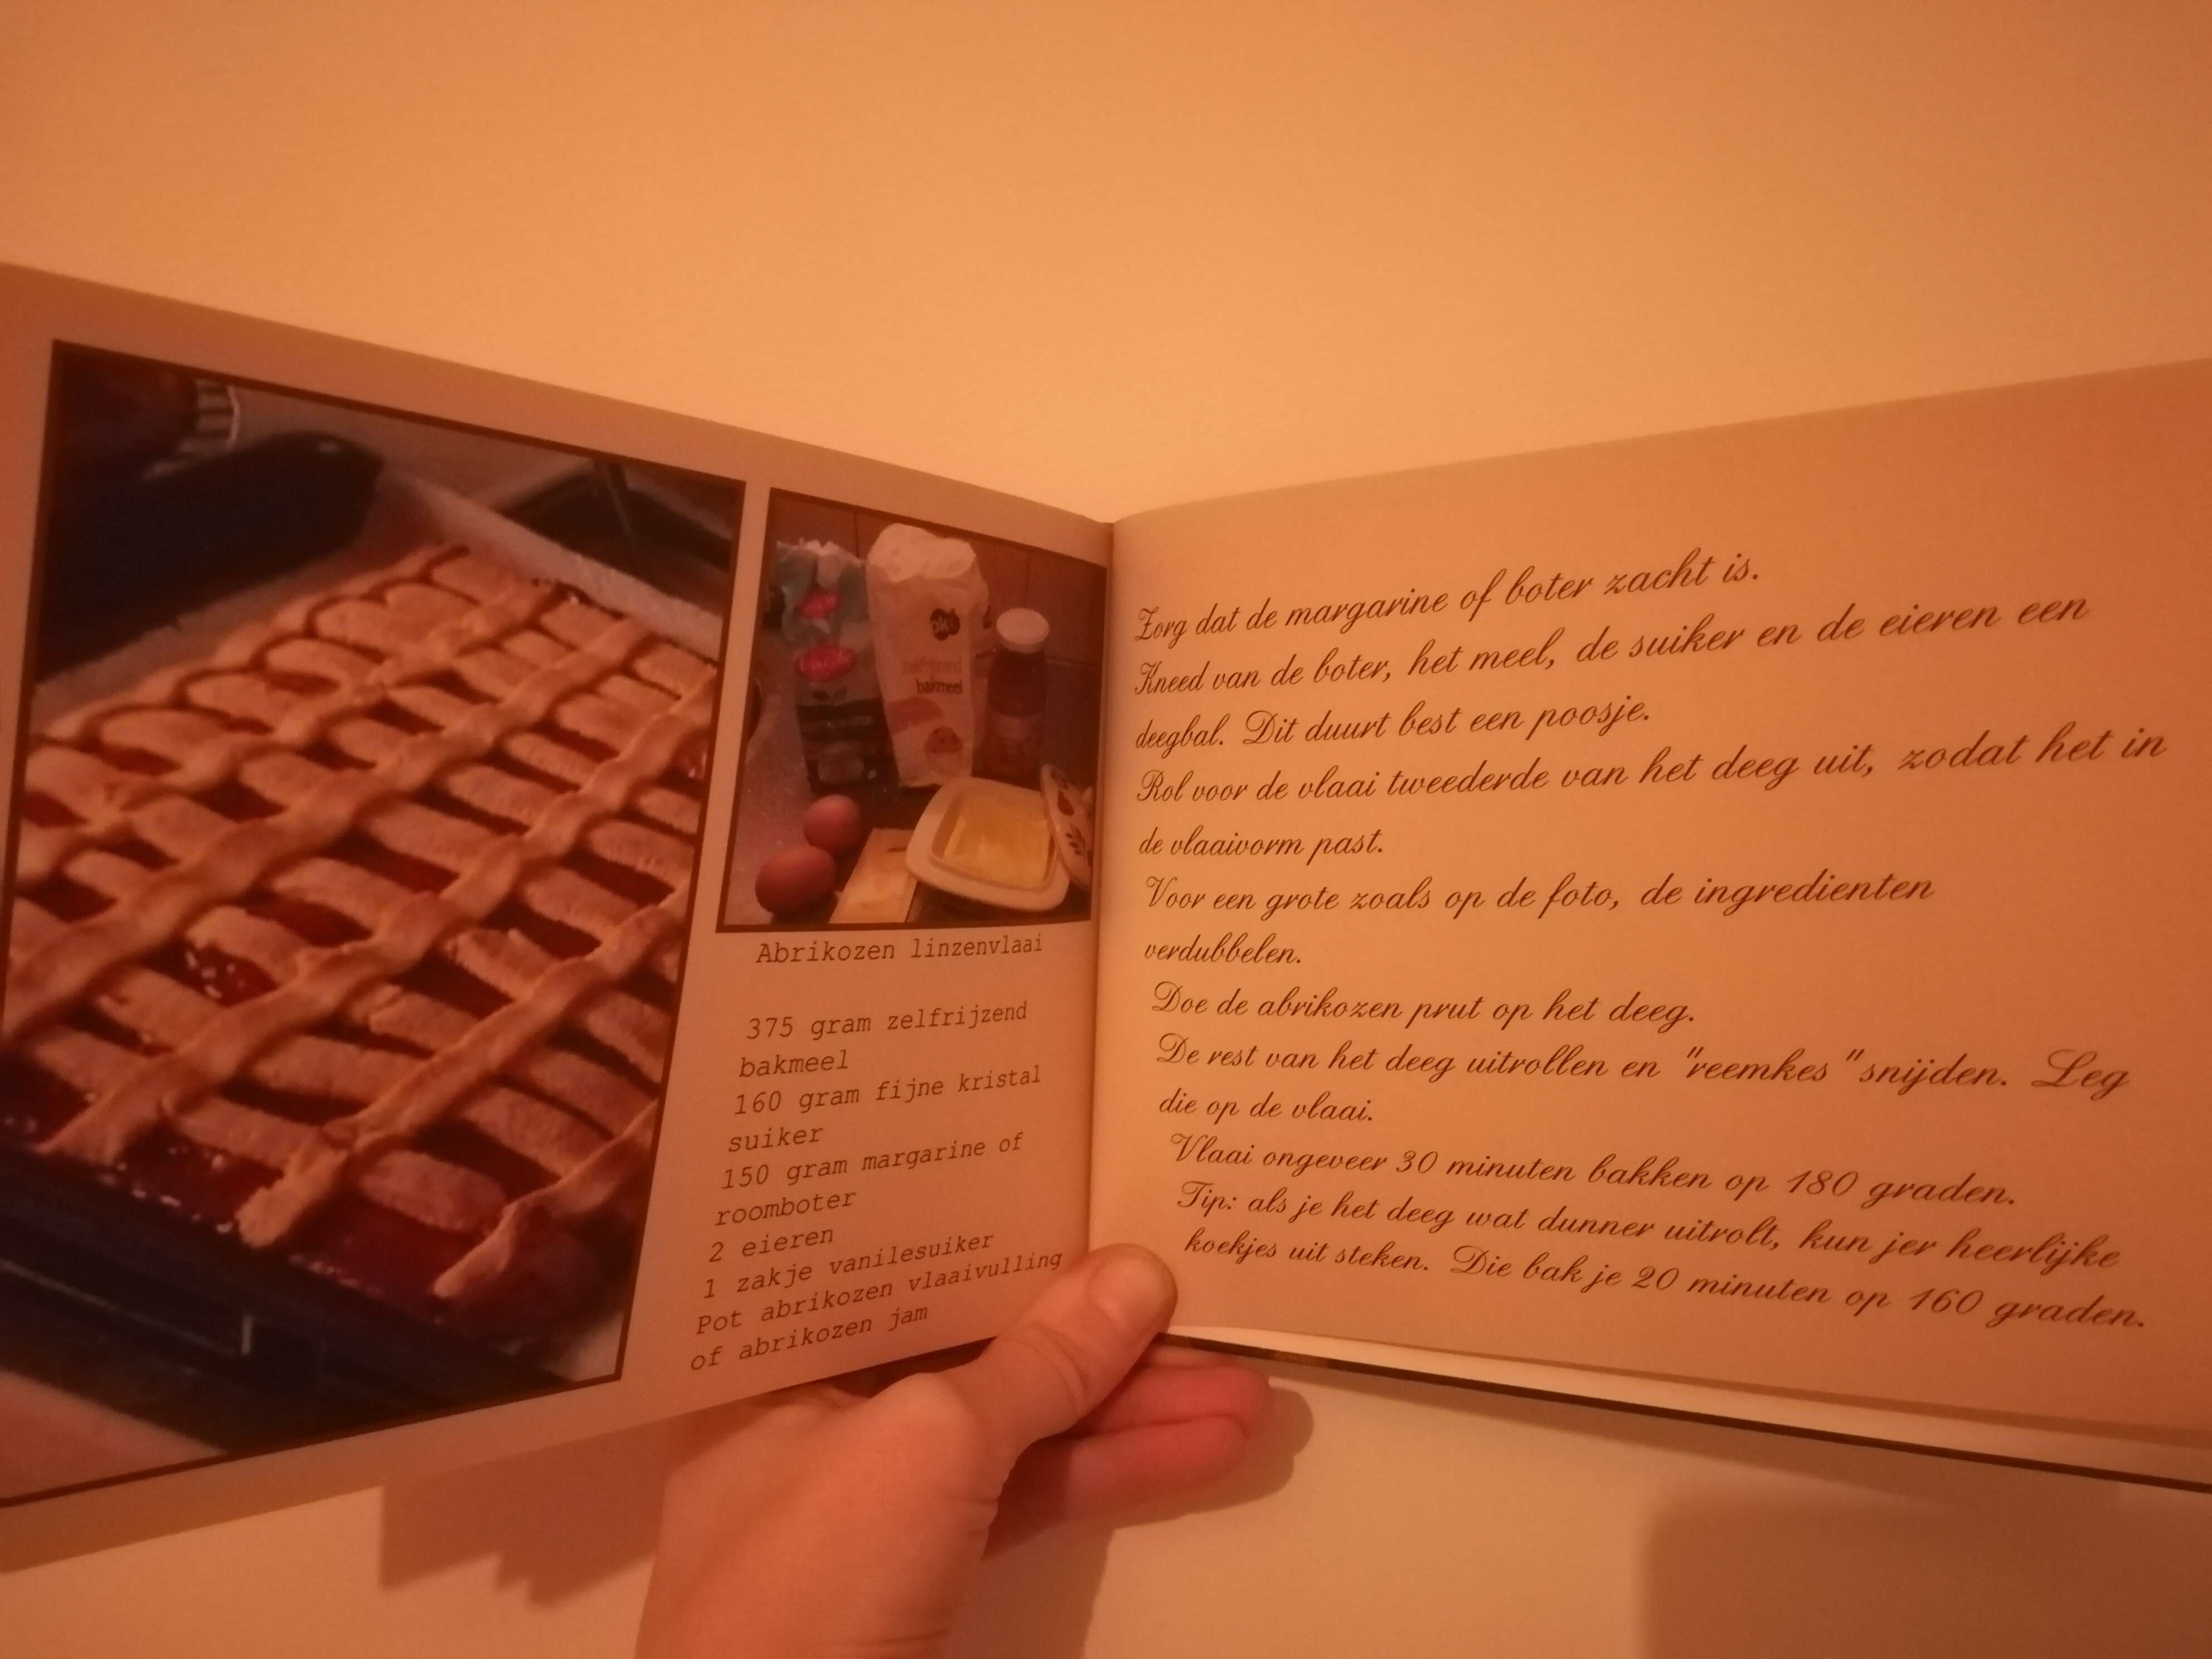 ok
zelfrijzend
bakmeel
Abrikozen linzenvlaai
375 gram zelfrijzend
bakmeel
160 gram fijne kristal
suiker
150 gram margarine of
roomboter
2 eieren
1 zakje vanilesuiker
Pot abrikozen vlaaivulling
of abrikozen jam
Zorg dat de margarine of boter zacht is.
Kneed van de boter, het meel, de suiker en de eieren een
deegbal. Dit duurt best een poosje.
Rol voor de vlaai tweederde van het deeg uit, zodat het in
de vlaaivorm past.
Voor een grote zoals op de foto, de ingredienten
verdubbelen.
Doe de abrikozen prut op het deeg.
De rest van het deeg uitrollen en "reemkes" snijden. Leg
die op de vlaai.
Vlaai ongeveer 30 minuten bakken op 180 graden.
Tip: als je het deeg wat dunner uitrolt, kun jer heerlijke
koekjes uit steken. Die bak je 20 minuten op 160 graden.